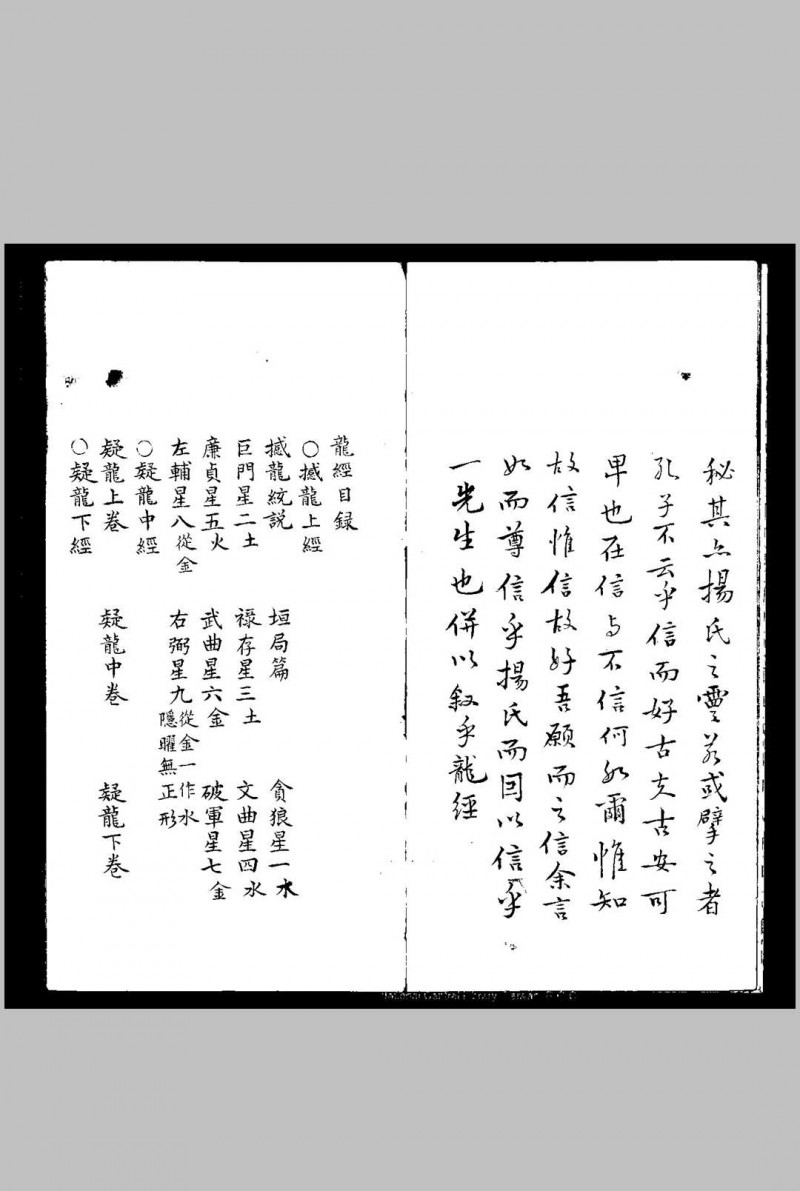 秘其亦揚氏之靈若或擘之者
孔子不云乎信而好古夫古安可
卑也在信与不信何如爾惟知
故信惟信故好吾願而之信余言
如而尊信乎揚氏而因以信乎
一先生也併以叙乎龍經
龍經目録
○撼龍上經
撼龍統説 垣局篇 貪狼星一水
巨門星二土 禄存星三土 文曲星四水
廉貞星五火 武曲星六金 破軍星七金
左輔星八從金 右弼星九從金一作水隱曜無正形
○疑龍中經
疑龍上卷 疑龍中卷 疑龍下卷
○疑龍下經